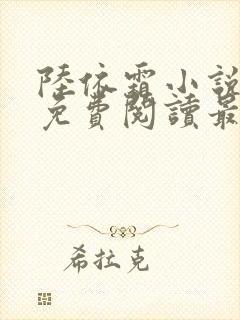 陸依霜小說
免費閱讀最
希拉克